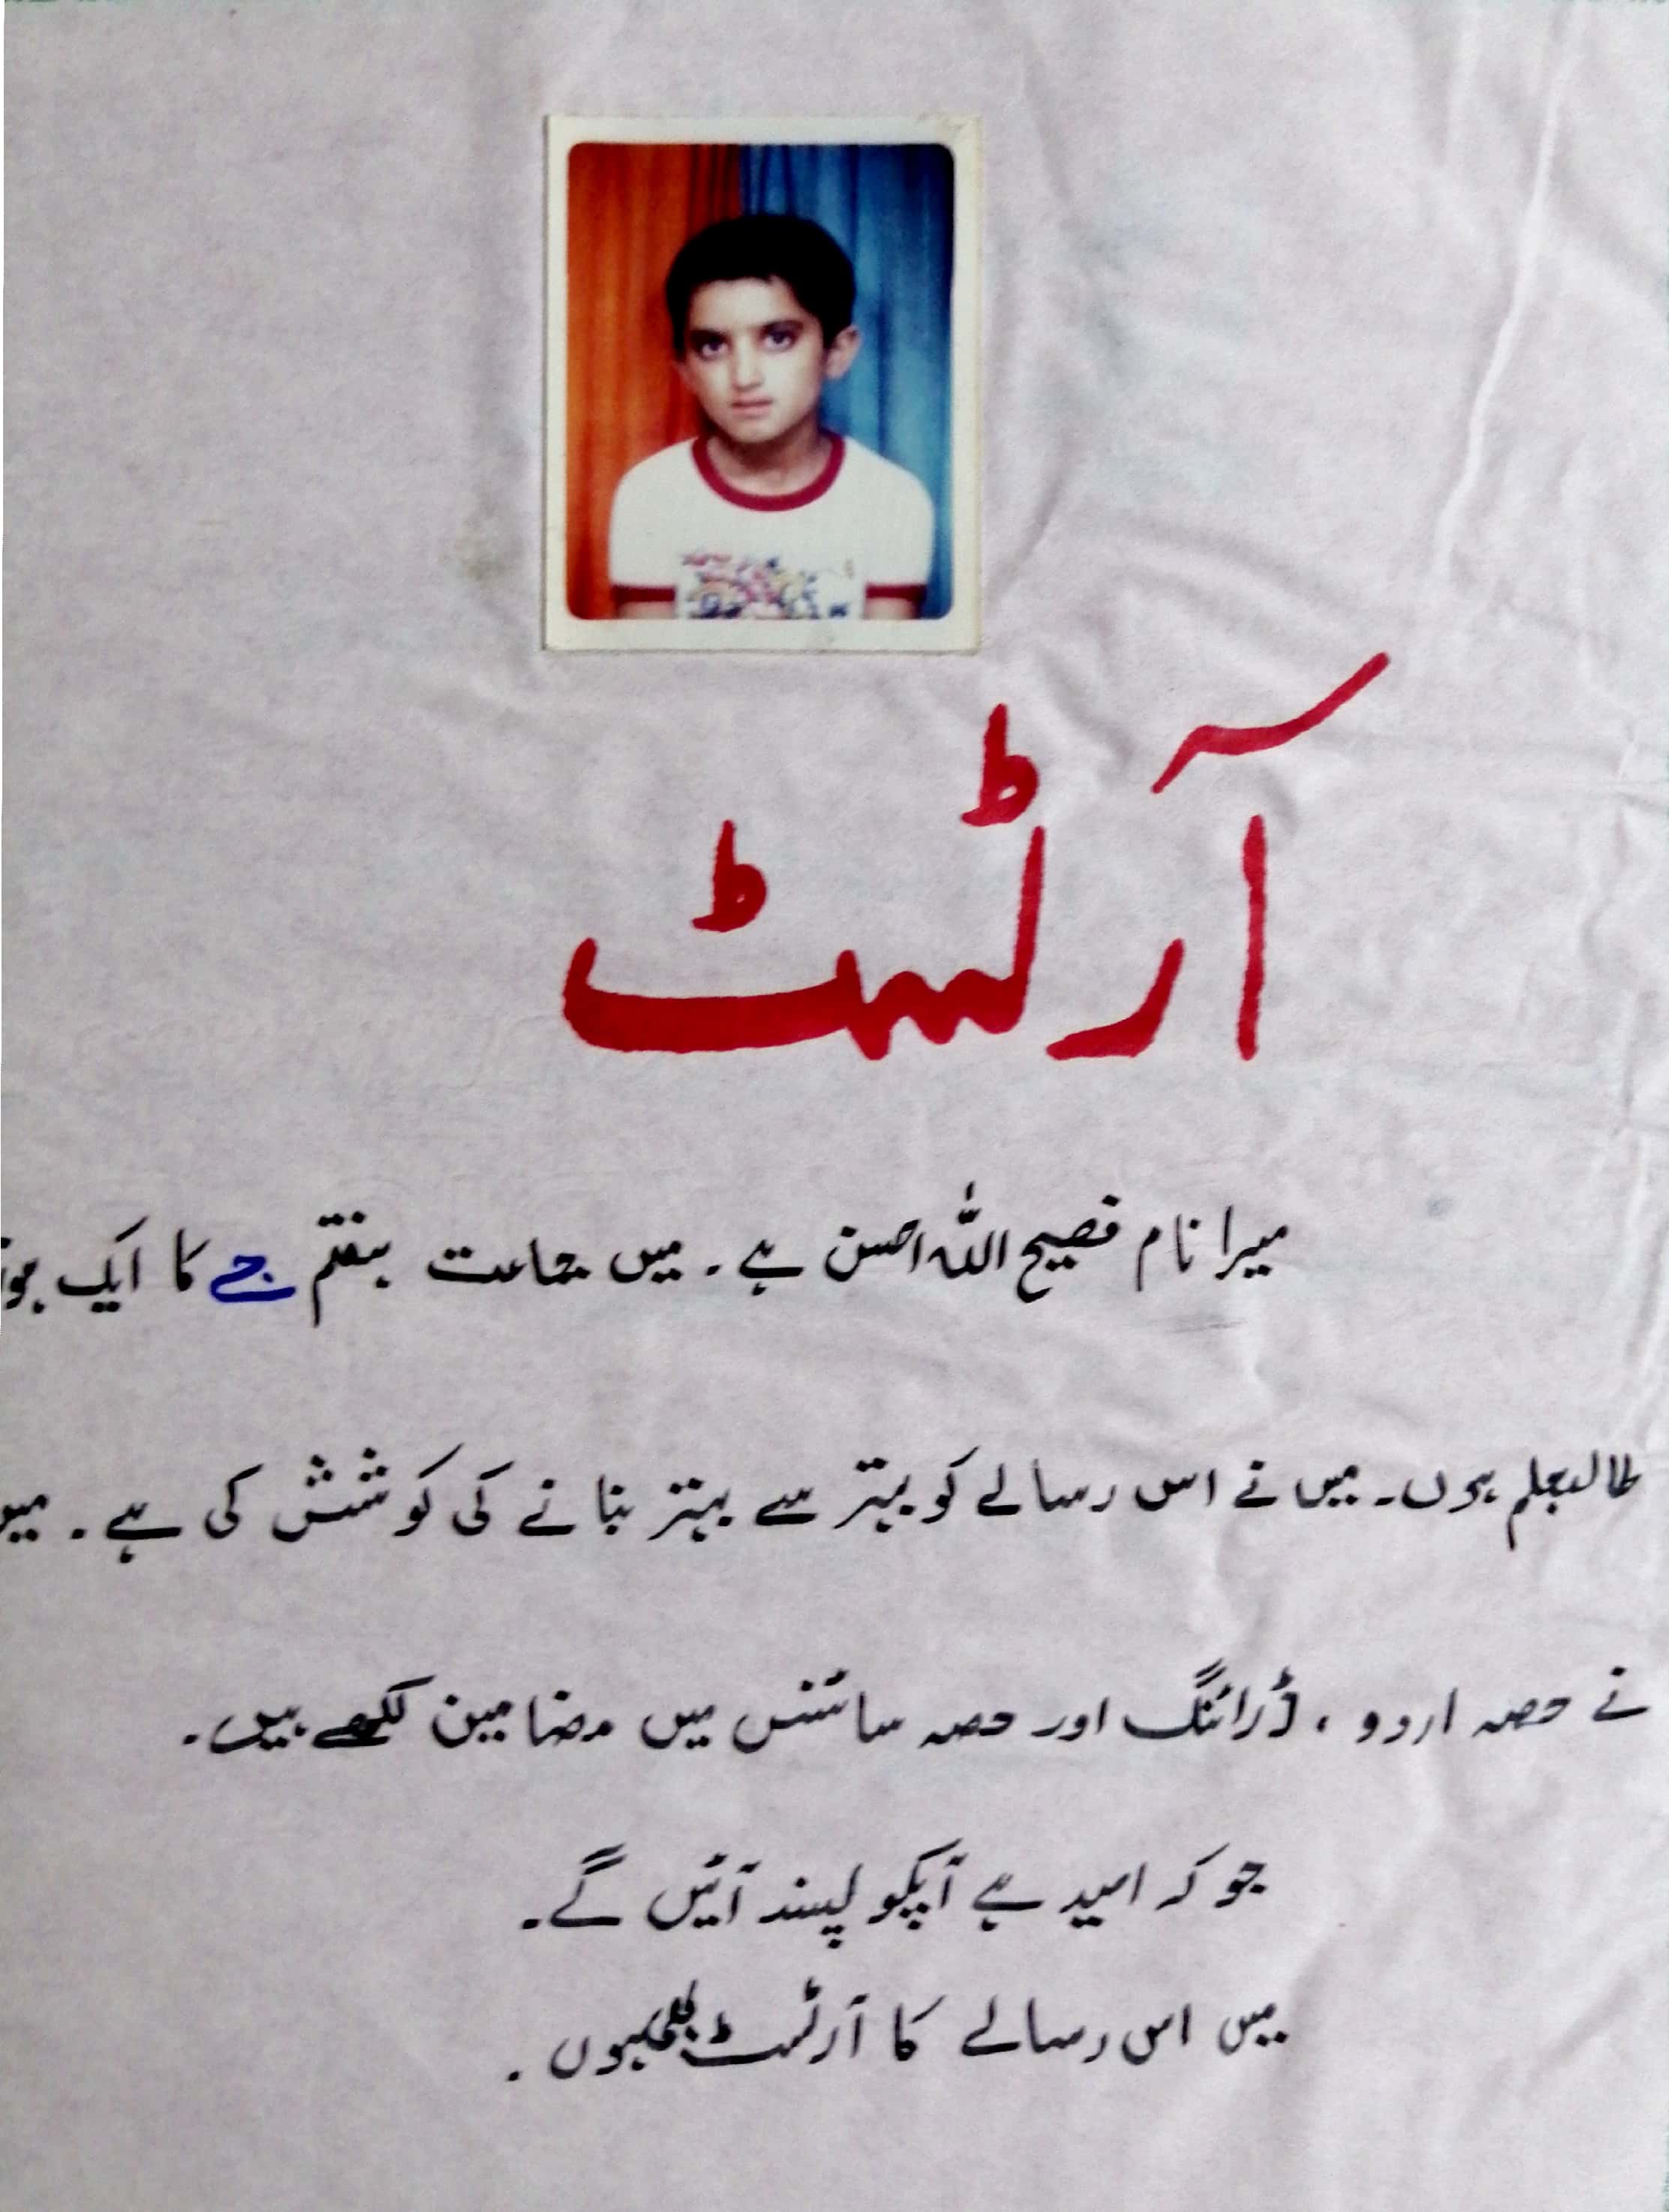 آرٹسٹ
میرا نام فصیح اللہ احسن ہے ۔ میں جماعت ہفتم جے کا ایک
طالبعلم ہوں ۔ میں نے اس رسالے کو بہتر سے بہتر بنانے کی کوشش کی ہے ۔ میں
نے حصہ اردو ، ڈرائنگ اور حصہ سائنس میں مضامین لکھے ہیں ۔
جو کہ امید ہے آپکو پسند آئیں گے ۔
میں اس رسالے کا آرٹسٹ ہوں ۔